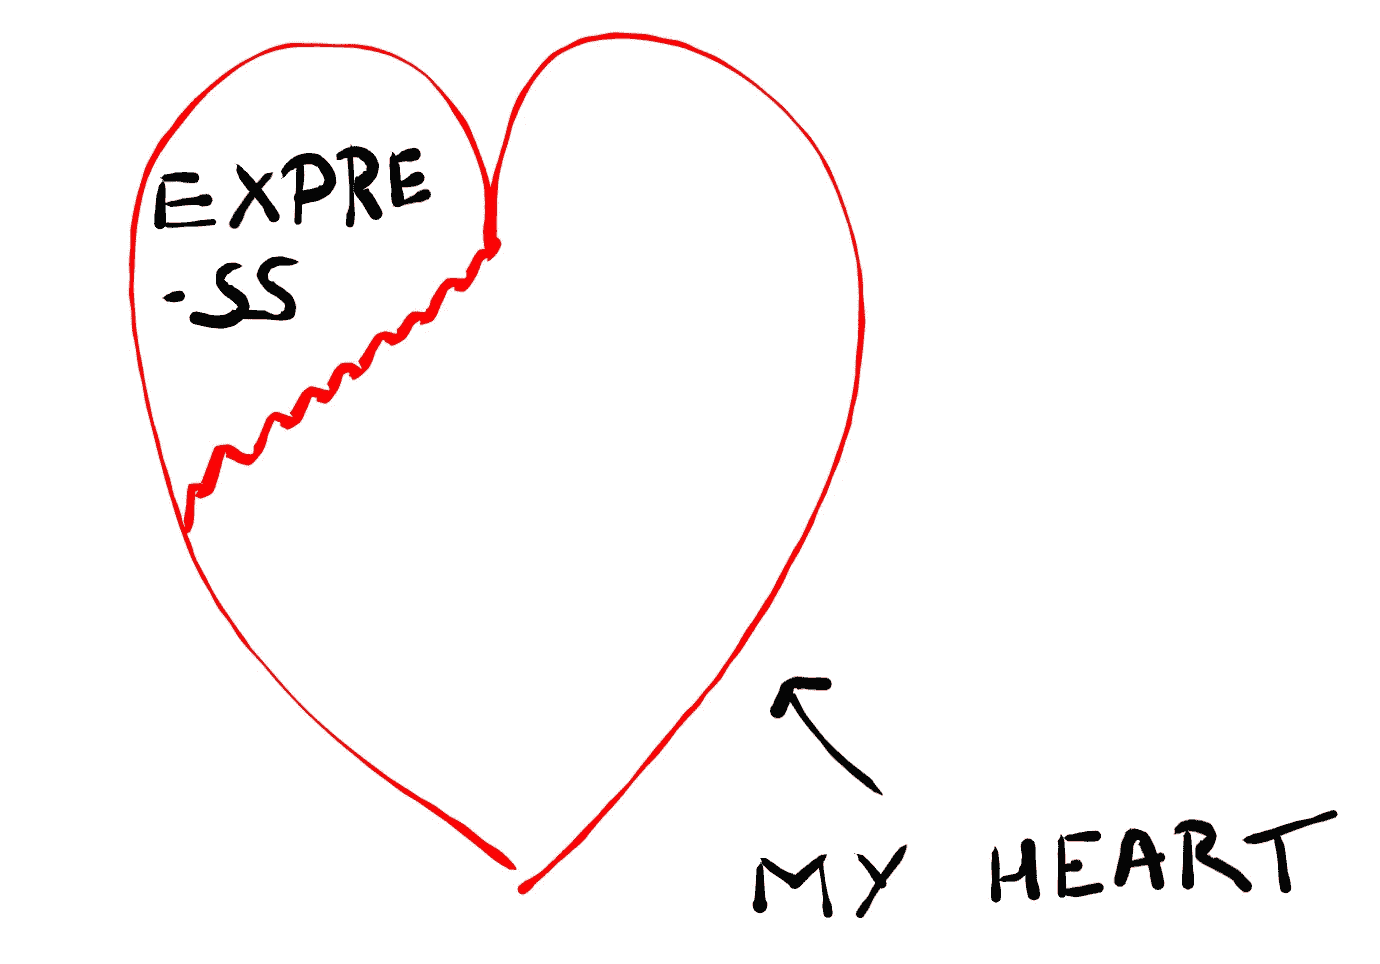 EXPRE
-SS
MY HEART